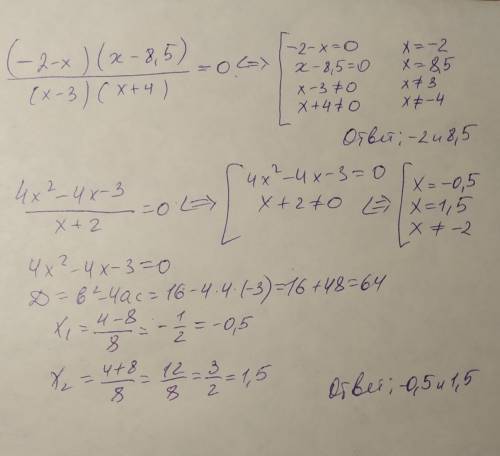 (-2-x)(x-8,5) / (x-3)(x+4) = 0 <=> [ -2-x=0 x=-2
x-8,5=0 x=8,5
x-3≠0 x≠3
x+4≠0 x≠-4
Ответ: -2 и 8,5
4x²-4x-3 / x+2 = 0 <=> [ 4x²-4x-3=0 x+2≠0 <=> [ x=-0,5 x=1,5 x≠-2
4x²-4x-3=0
D=b²-4ac=16-4·4·(-3)=16+48=64
x₁=4-8/8=-1/2=-0,5
x₂=4+8/8=12/8=3/2=1,5
Ответ: -0,5 и 1,5